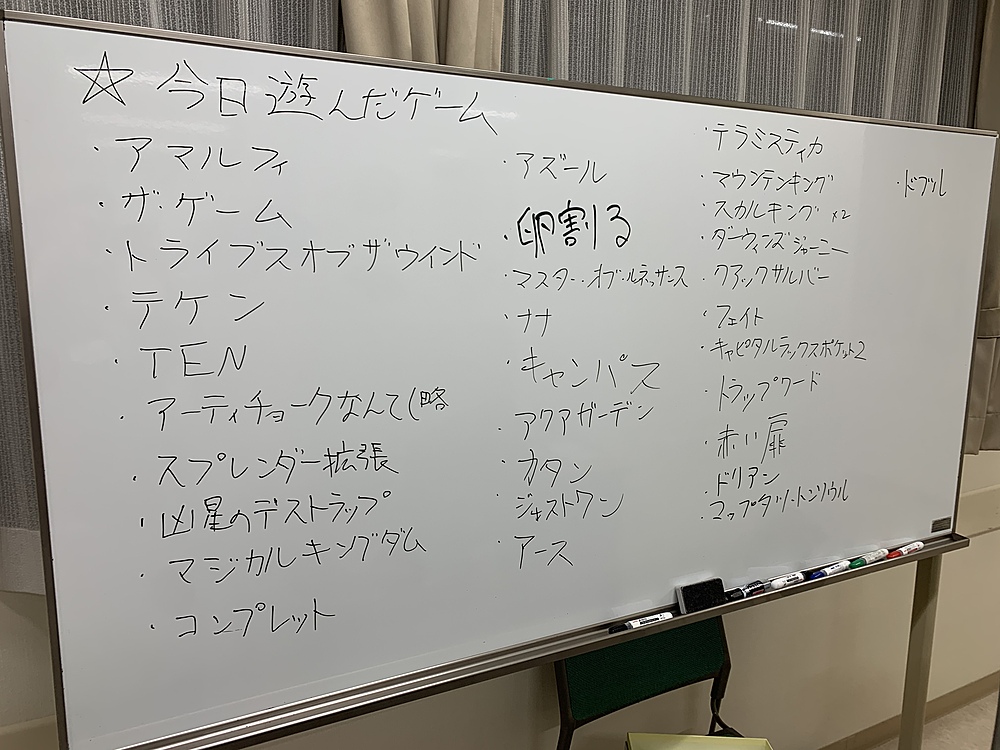 ☆今日遊んだゲーム
・アマルフィ
・ザ・ゲーム
・トライブスオブザウインド
・テケン
・TEN
・アーティチョークなんて(略
・スプレンダー拡張
・凶星のデストラップ
・マジカルキングダム
・コンプレット
・アズール
・卵割る
・マスター・オブ・ルネッサンス
・ナナ
・キャンバス
・アクアガーデン
・カタン
・ジャストワン
・アース
・テラミスティカ
・マウンテンキング
・スカルキング ×2
・ダーウィンズジャーニー
・クアックサルバー
・フェイト
・キャピタルラックスポケット2
・トラップワード
・赤い扉
・ドリアン
・マップタツートンソウル
・ドブル